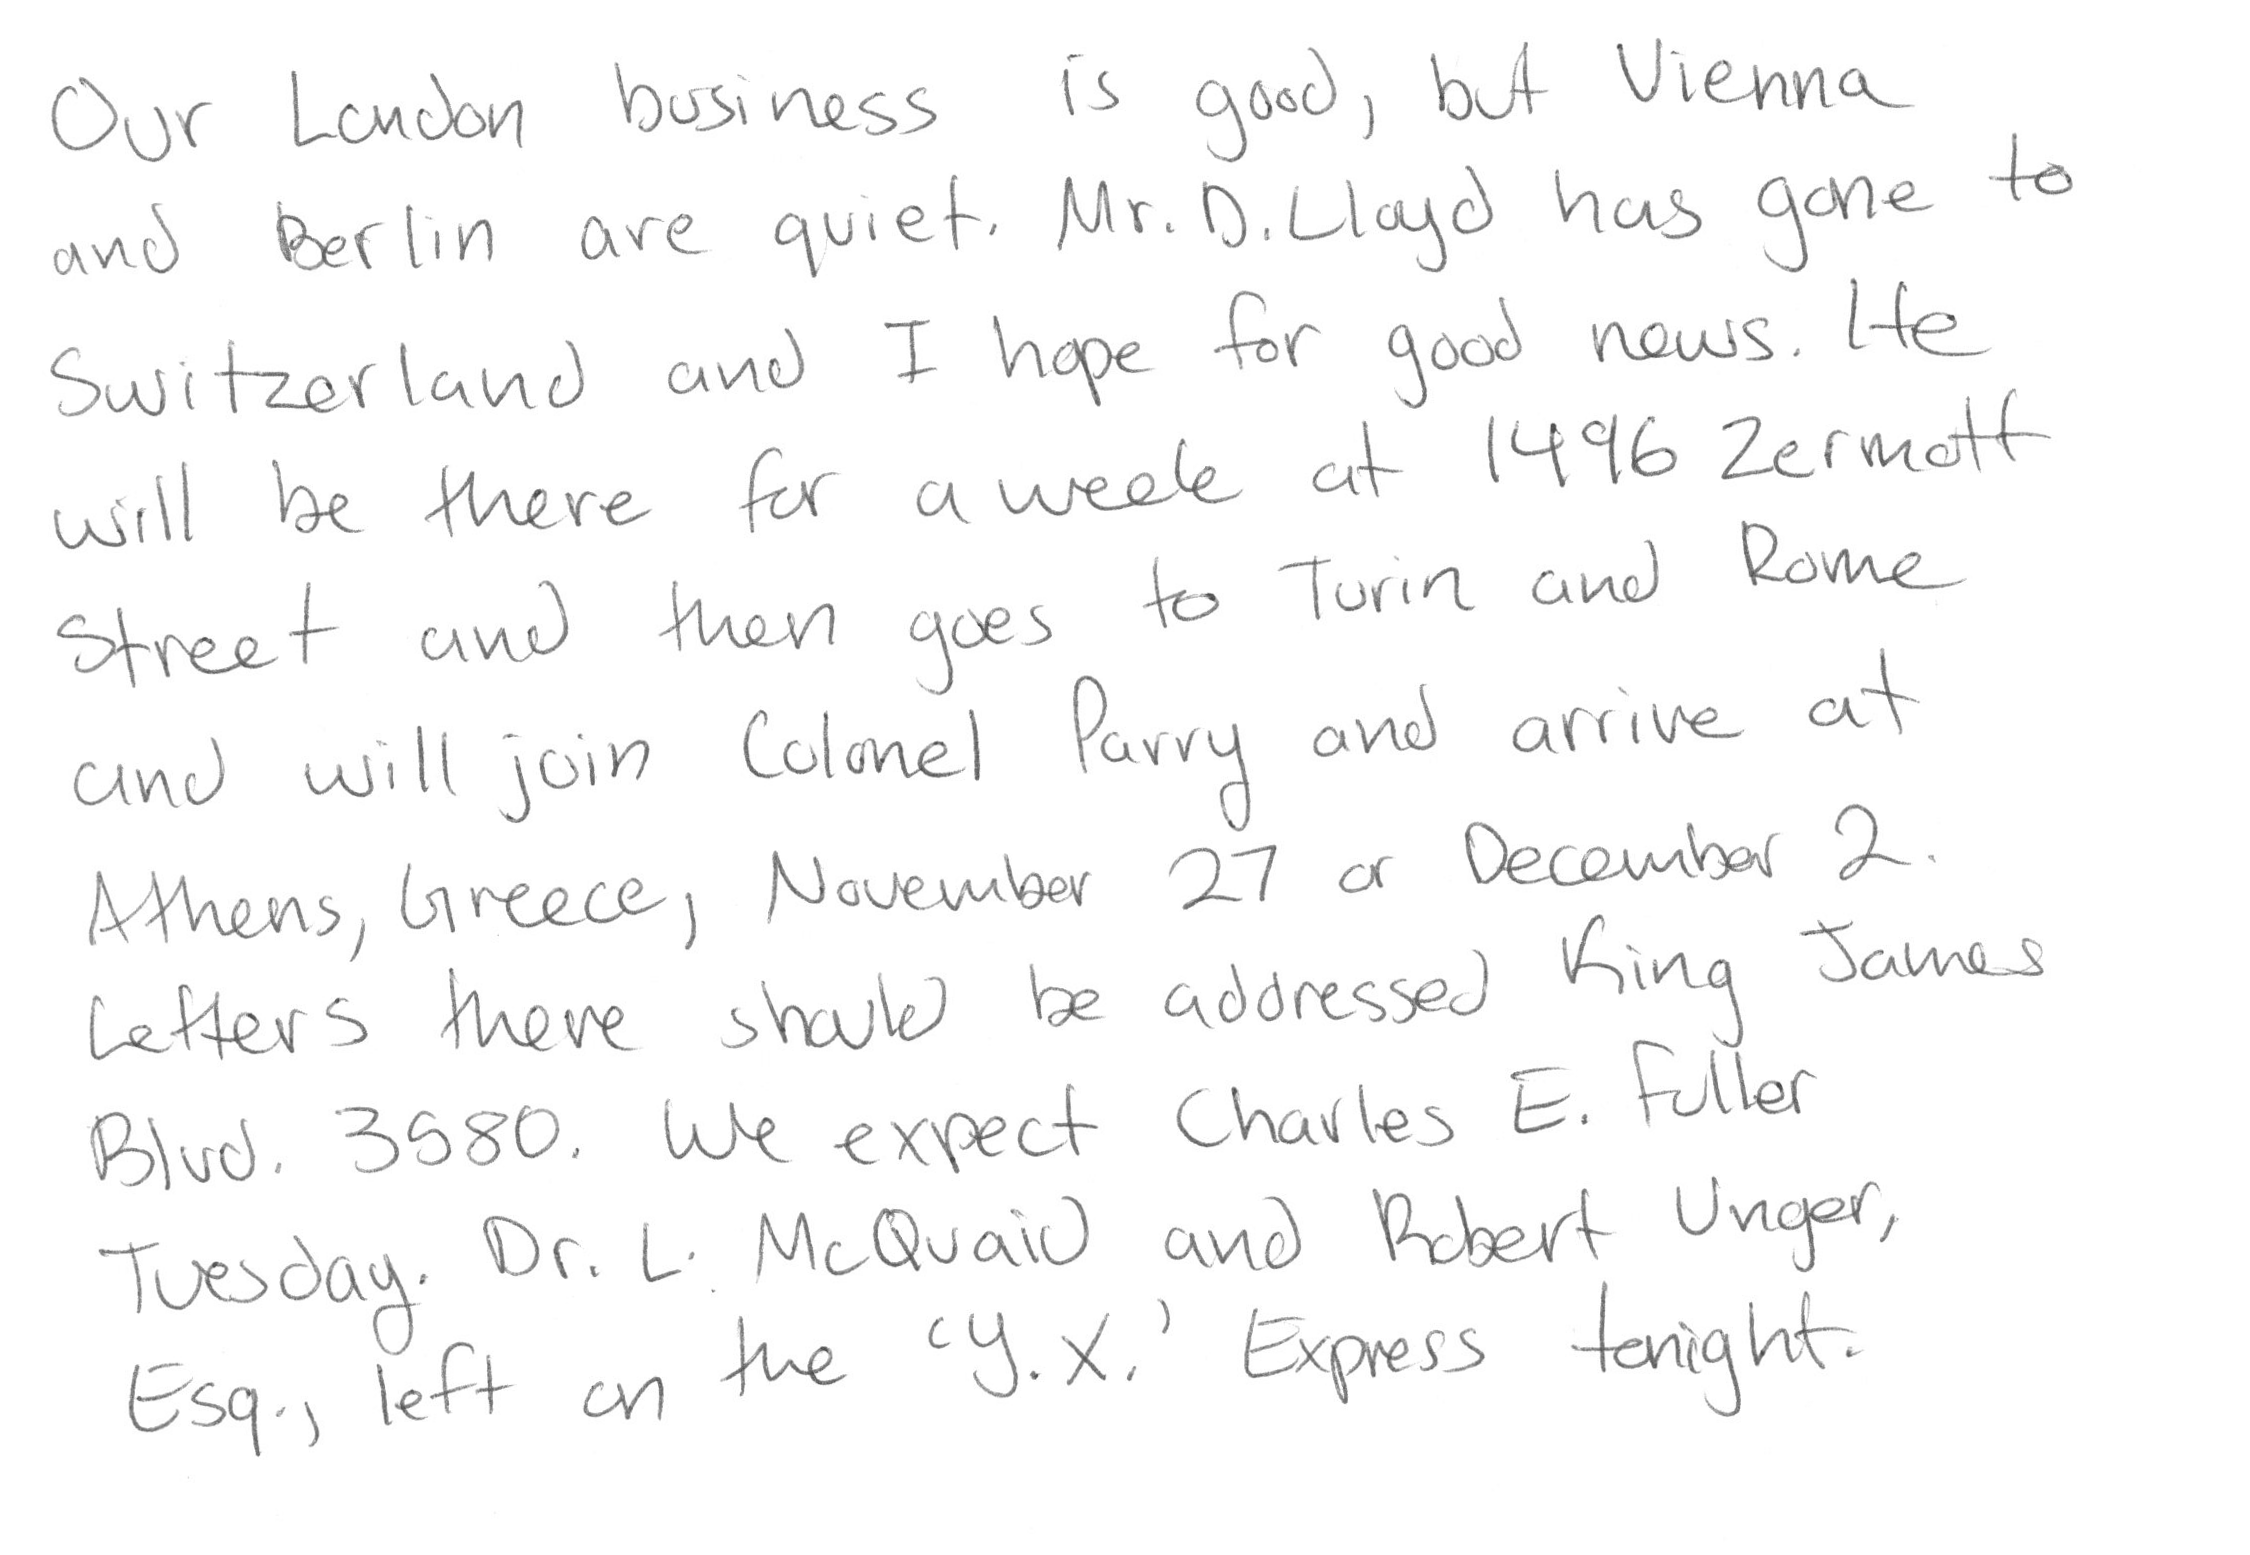 Our London business is good, but Vienna
and Berlin are quiet. Mr. D. Lloyd has gone to
Switzerland and I hope for good news. He
will be there for a week at 1496 Zermott
Street and then goes to Turin and Rome
and will join Colonel Parry and arrive at
Athens, Greece, November 27 or December 2.
Letters there should be addressed King James
Blvd. 3580. We expect Charles E. Fuller
Tuesday. Dr. L. McQuaid and Robert Unger,
Esq., left on the 'Y.X.' Express tonight.